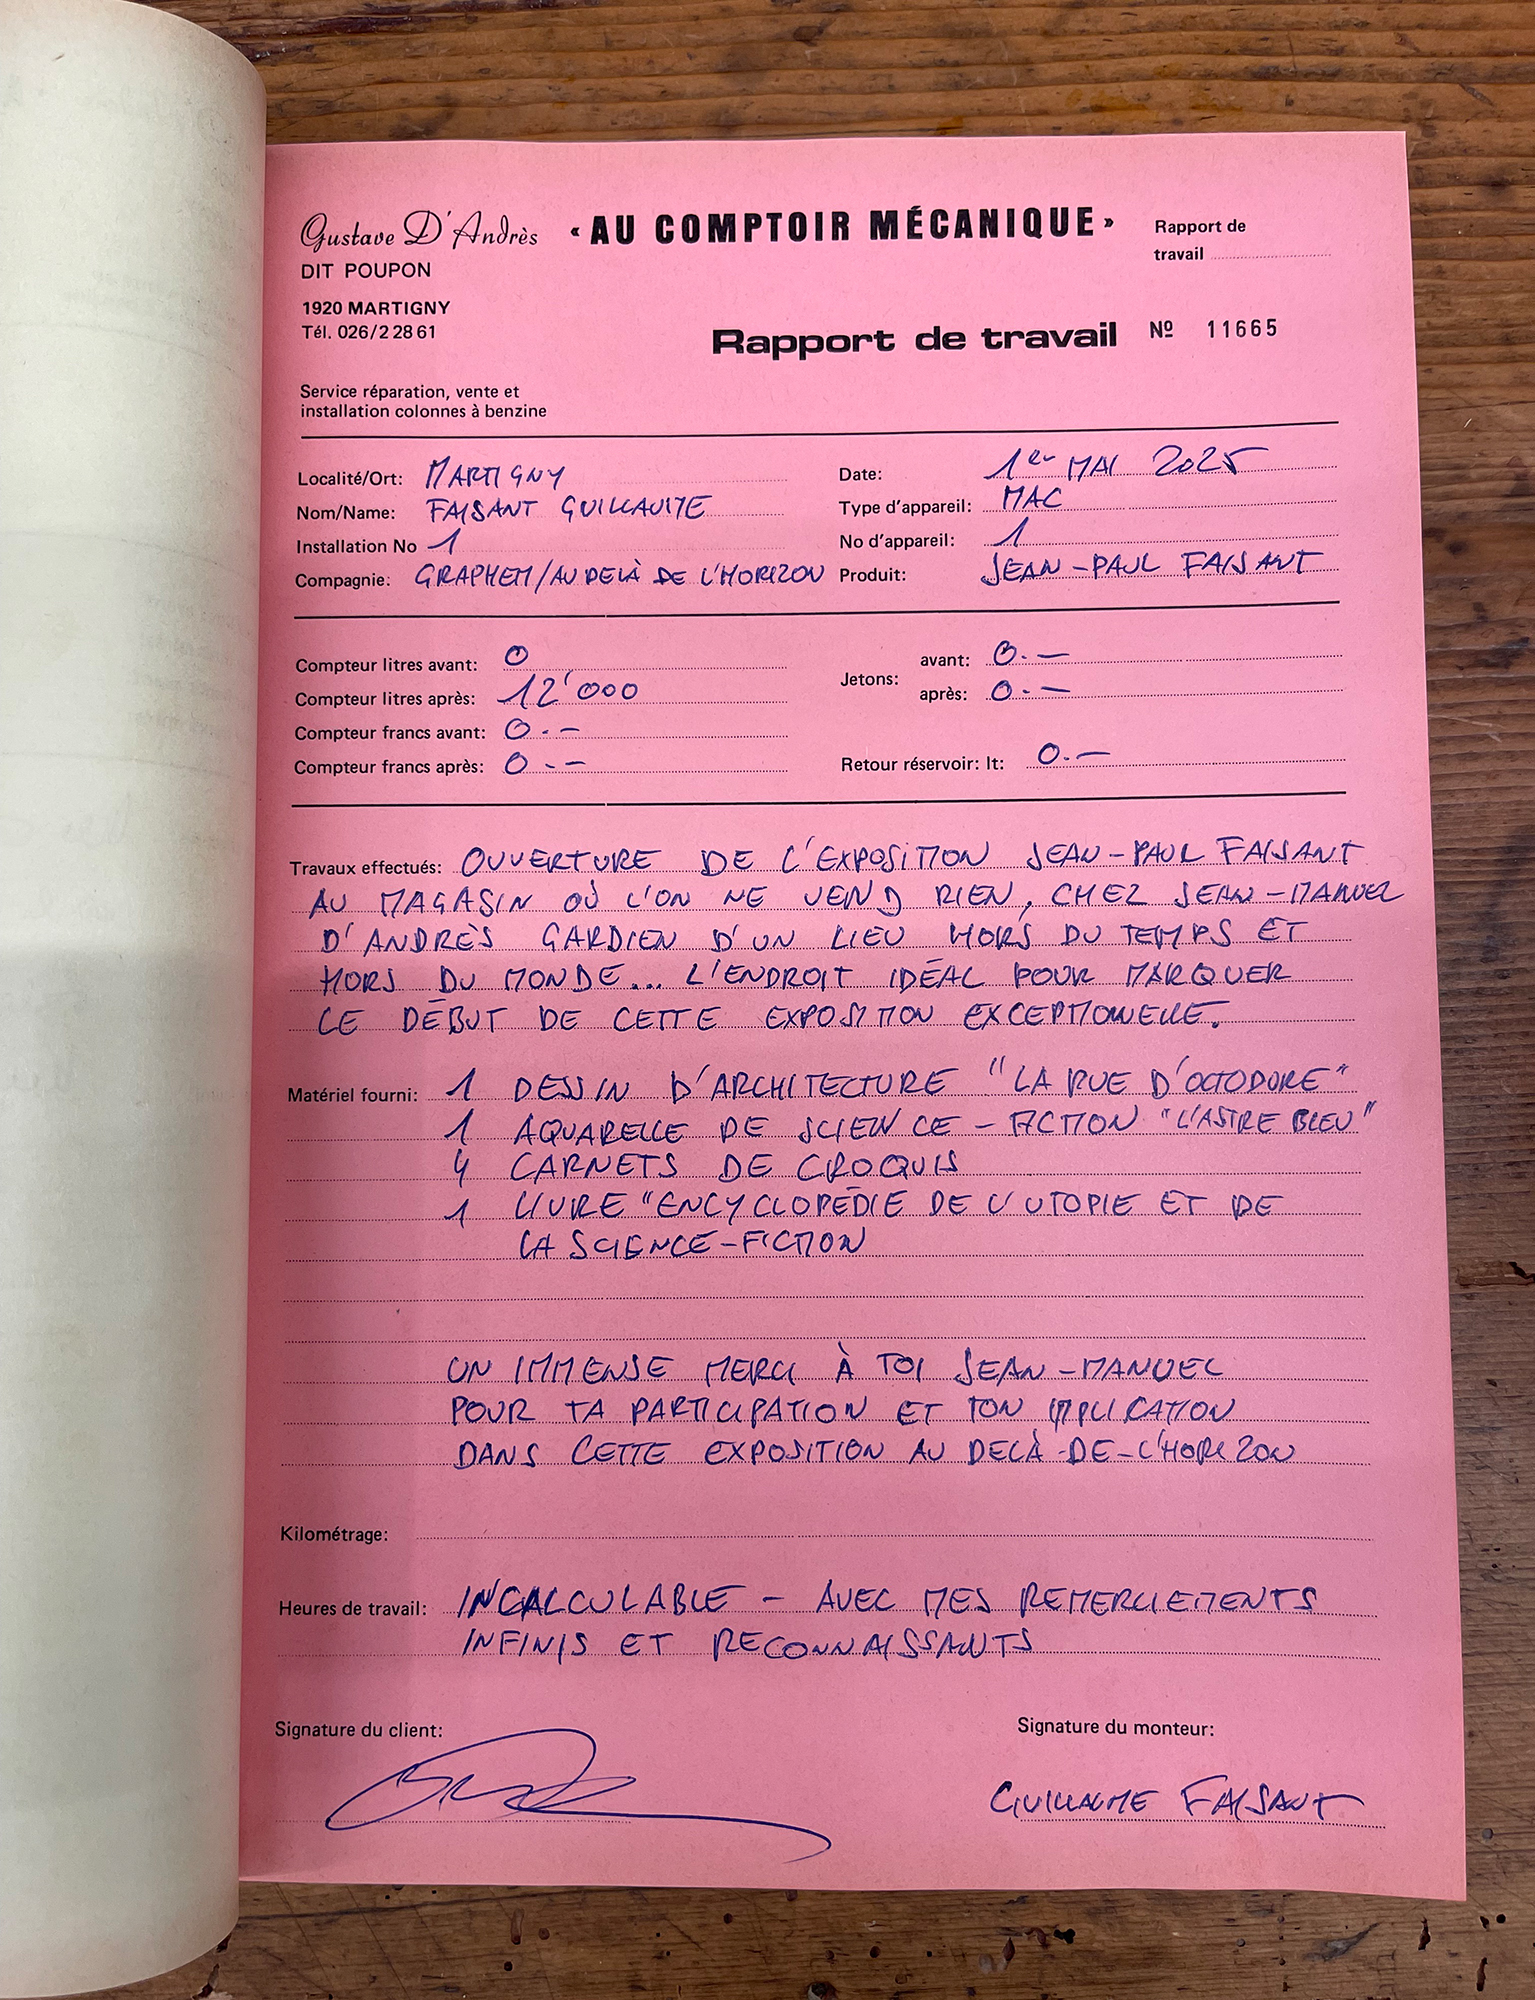 Gustave D'Andrès « AU COMPTOIR MÉCANIQUE » Rapport de
DIT POUPON travail
1920 MARTIGNY
Tél. 026/2 28 61
Rapport de travail Nº 11665
Service réparation, vente et
installation colonnes à benzine
Localité/Ort: MARTIGNY Date: 1er MAI 2025
Nom/Name: FAISANT GUILLAUME Type d'appareil: MAC
Installation No 1 No d'appareil: 1
Compagnie: GRAPHEM/AU DELÀ DE L'HORIZON Produit: JEAN-PAUL FAISANT
Compteur litres avant: 0 Jetons: avant: 0.—
Compteur litres après: 12'000 après: 0.—
Compteur francs avant: 0.—
Compteur francs après: 0.— Retour réservoir: lt: 0.—
Travaux effectués: OUVERTURE DE L'EXPOSITION JEAN-PAUL FAISANT
AU MAGASIN OÙ L'ON NE VEND RIEN, CHEZ JEAN-MANUEL
D'ANDRÈS GARDIEN D'UN LIEU HORS DU TEMPS ET
HORS DU MONDE... L'ENDROIT IDÉAL POUR MARQUER
LE DÉBUT DE CETTE EXPOSITION EXCEPTIONELLE.
Matériel fourni: 1 DESSIN D'ARCHITECTURE "LA RUE D'OCTODURE"
1 AQUARELLE DE SCIENCE-FICTION "L'ASTRE BLEU"
4 CARNETS DE CROQUIS
1 LIVRE "ENCYCLOPÉDIE DE L'UTOPIE ET DE
LA SCIENCE-FICTION
UN IMMENSE MERCI À TOI JEAN-MANUEL
POUR TA PARTICIPATION ET TON IMPLICATION
DANS CETTE EXPOSITION AU DELÀ-DE-L'HORIZON
Kilométrage:
Heures de travail: INCALCULABLE - AVEC MES REMERCIEMENTS
INFINIS ET RECONNAISSANTS
Signature du client: Signature du monteur:
GUILLAUME FAISANT